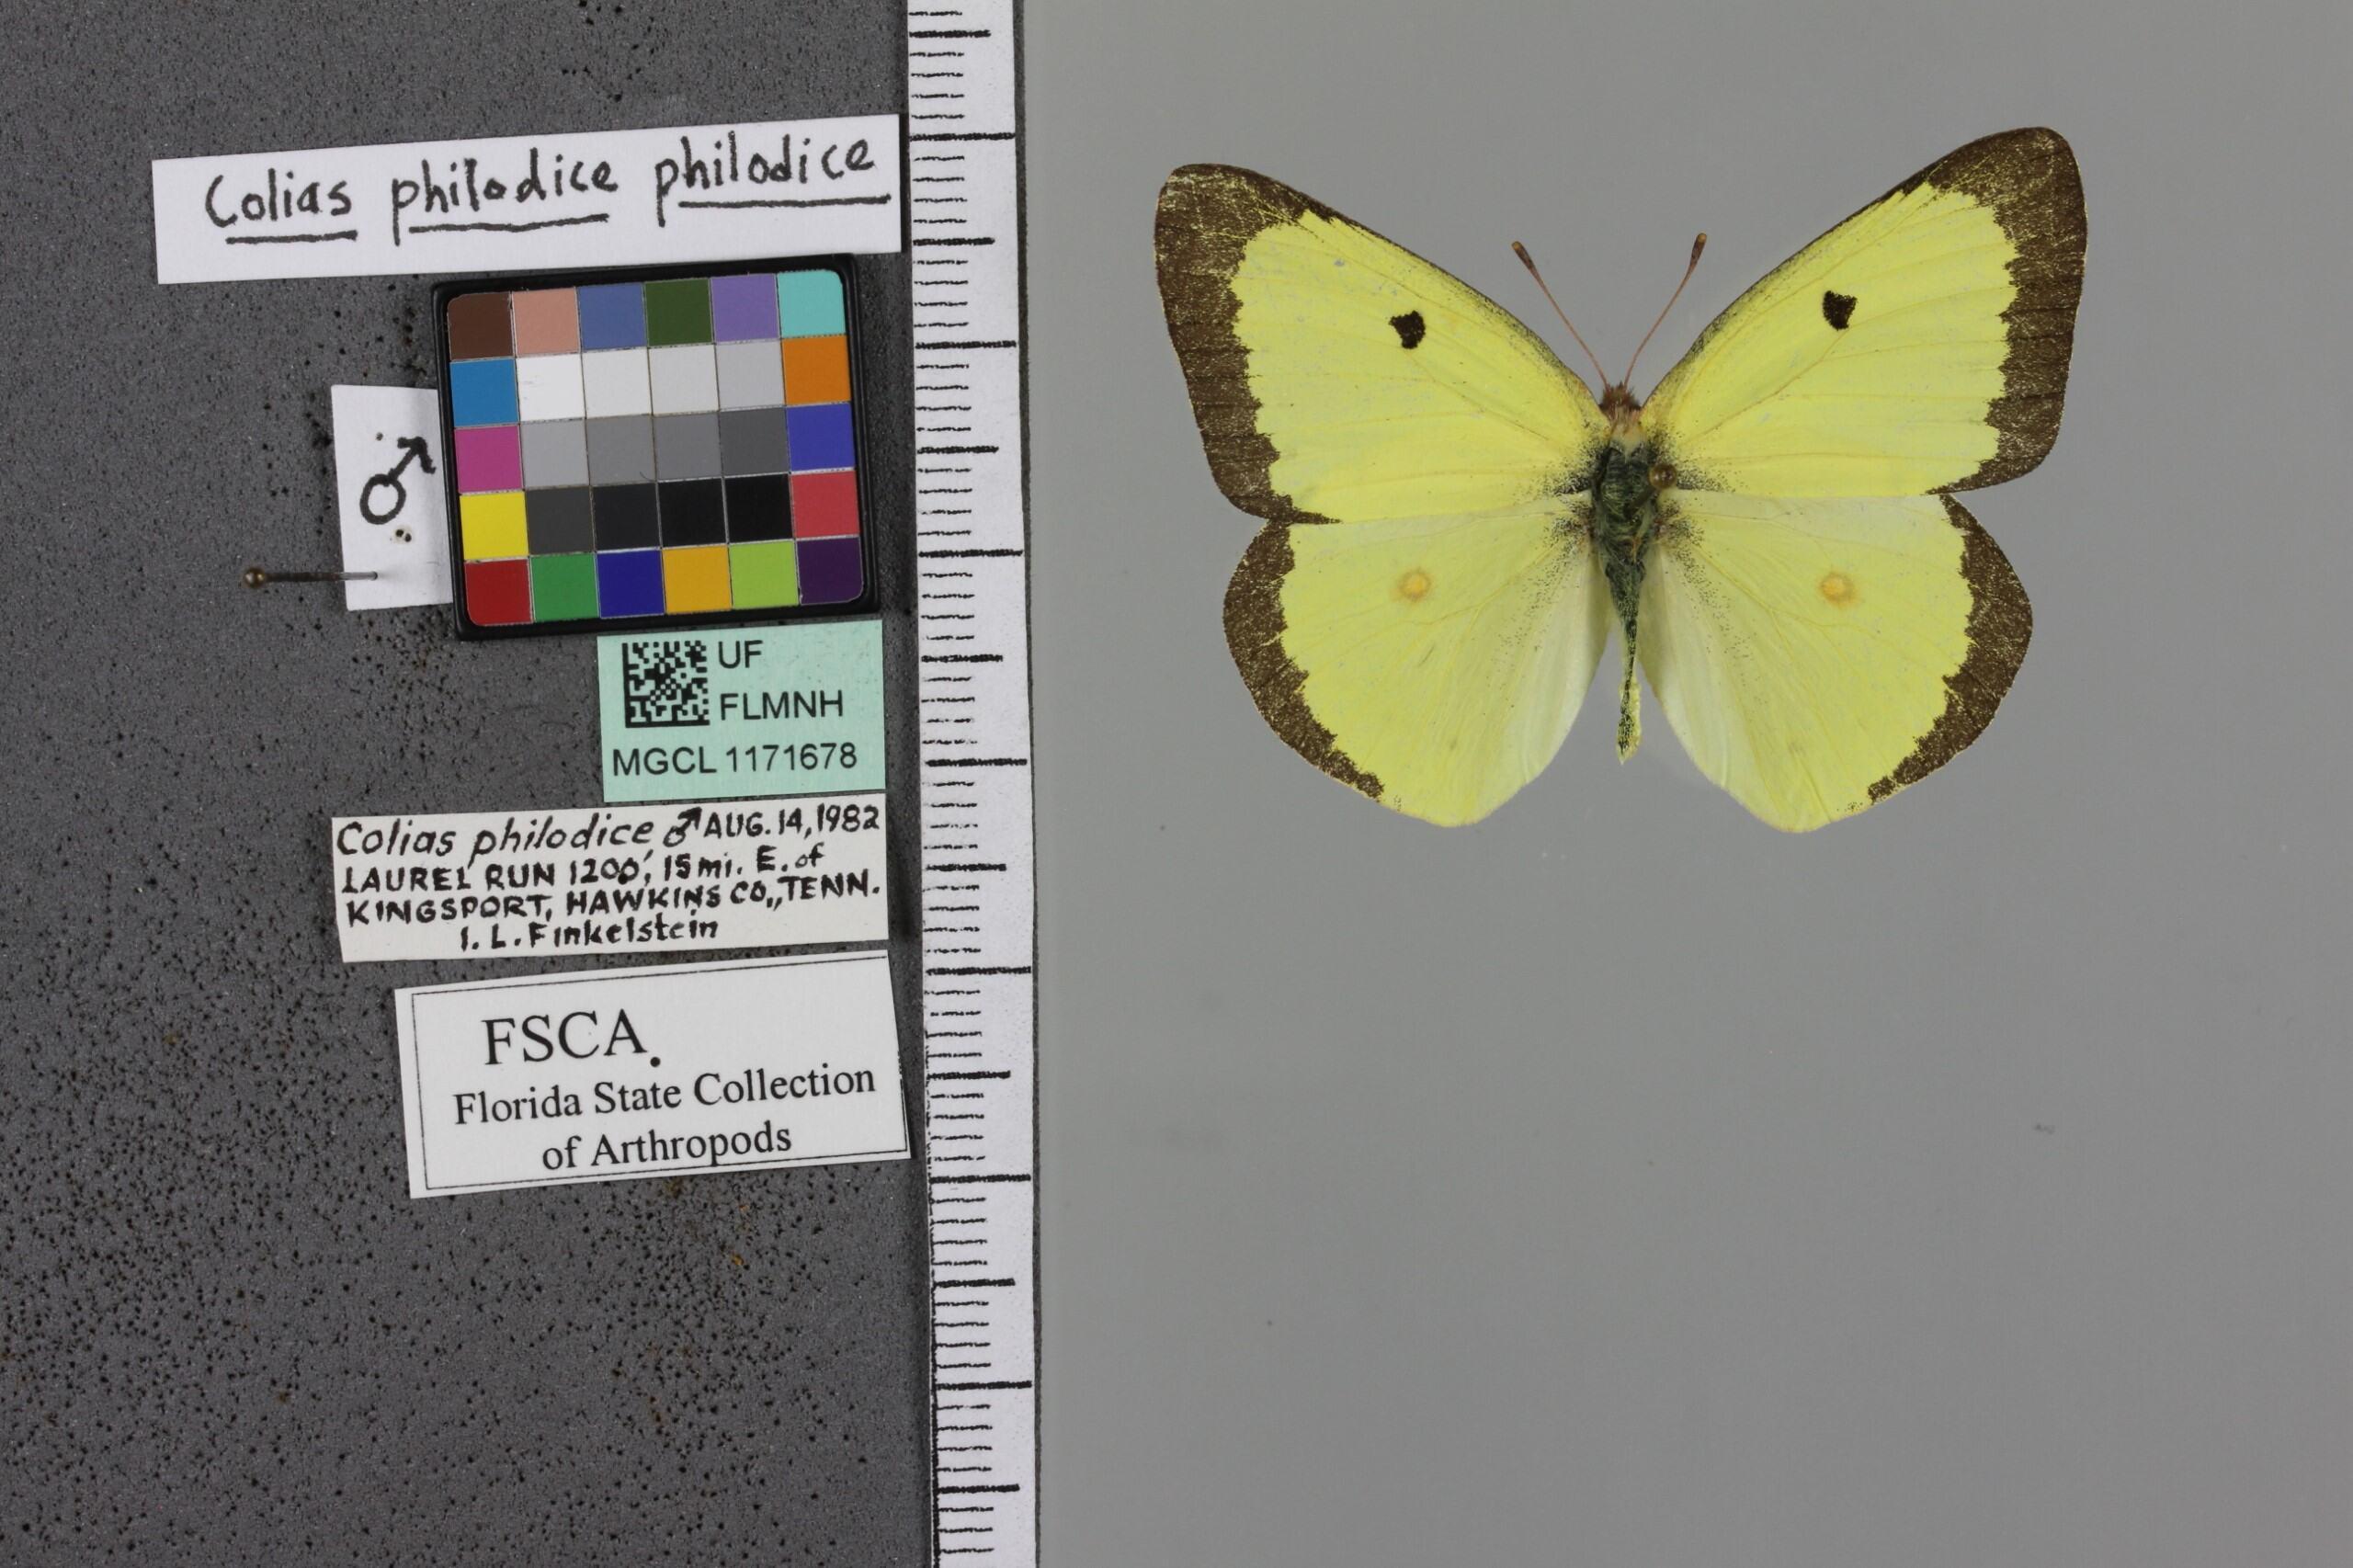 Colias philodice philodice
♂
UF
FLMNH
MGCL 1171678
Colias philodice ♂ AUG. 14, 1982
LAUREL RUN 1200', 15 mi. E. of
KINGSPORT, HAWKINS CO., TENN.
I. L. Finkelstein
FSCA.
Florida State Collection
of Arthropods